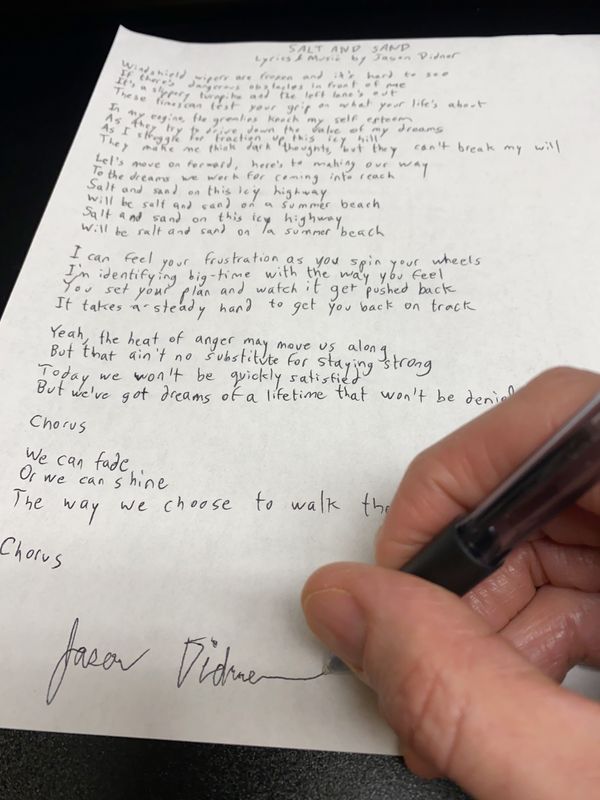 SALT AND SAND
Lyrics & Music by Jason Didner
Windshield wipers are frozen and it's hard to see
If there's dangerous obstacles in front of me
It's a slippery turnpike and the left lane's out
These times can test your grip on what your life's about
In my engine, the gremlins knock my self esteem
As they try to drive down the value of my dreams
As I struggle for traction up this icy hill
They make me think dark thoughts, but they can't break my will
Let's move on forward, here's to making our way
To the dreams we work for coming into reach
Salt and sand on this icy highway
Will be salt and sand on a summer beach
Salt and sand on this icy highway
Will be salt and sand on a summer beach
I can feel your frustration as you spin your wheels
I'm identifying big-time with the way you feel
You set your plan and watch it get pushed back
It takes a steady hand to get you back on track
Yeah, the heat of anger may move us along
But that ain't no substitute for staying strong
Today we won't be quickly satisfied
But we've got dreams of a lifetime that won't be denie
Chorus
We can fade
Or we can shine
The way we choose to walk the
Chorus
Jason Didner